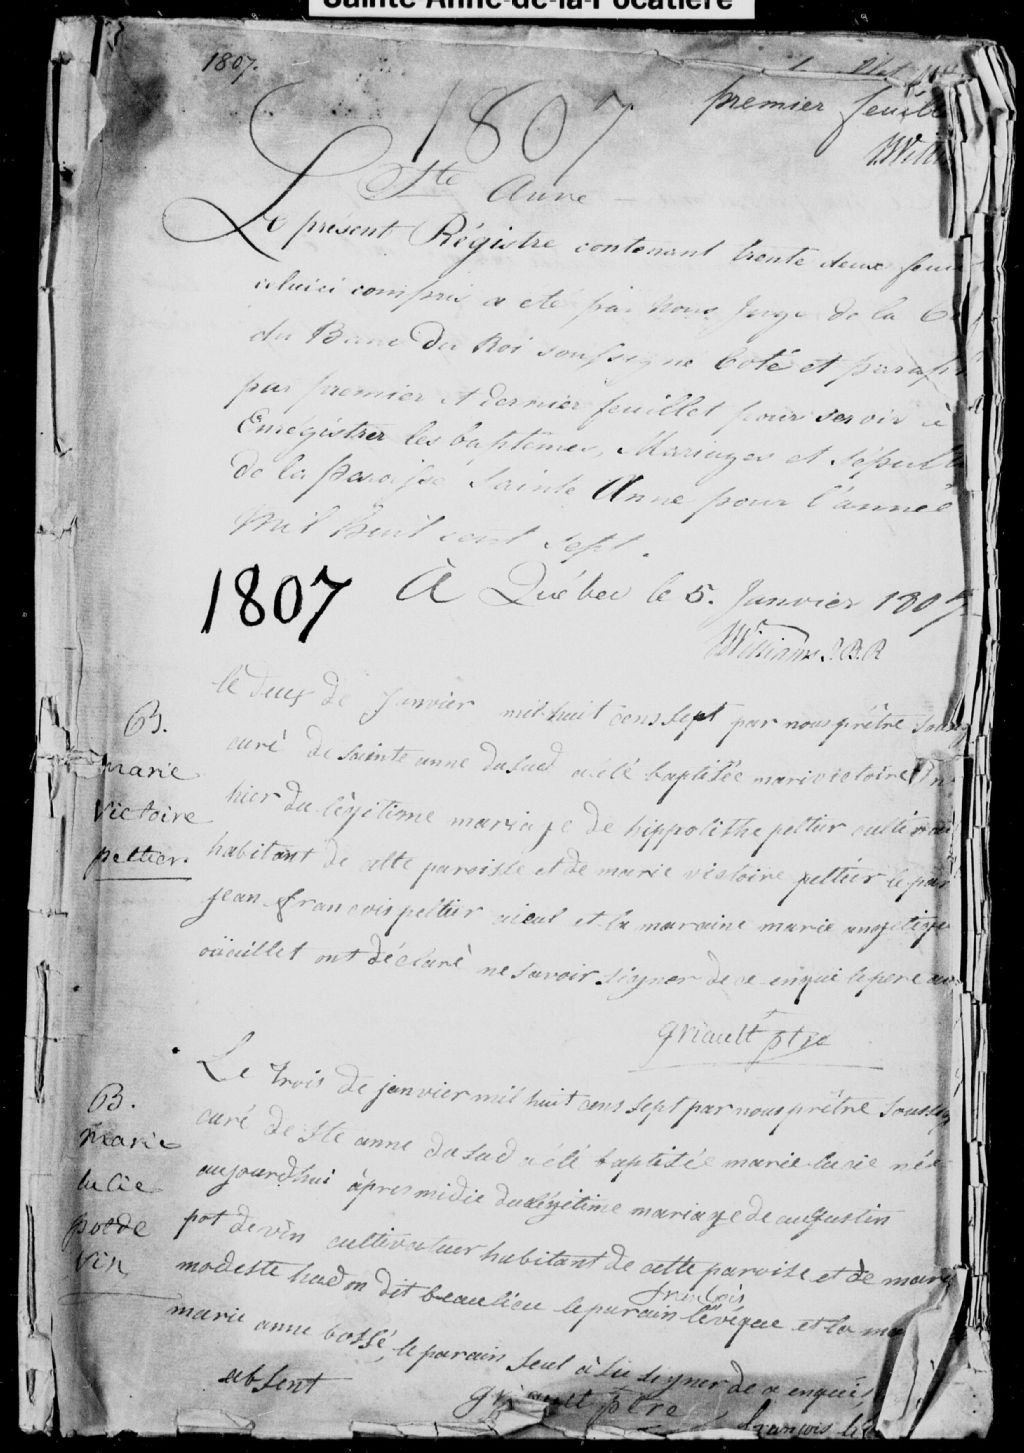 Sainte-Anne-de-la-Pocatière
1807.
premier feuille
1807
Ste Anne
Le présent Régistre contenant trente deux
celuici compris a été par nous Juge de la
du Banc du Roi soussigné Coté et
par premier et dernier feuillet pour servir à
Enregistrer les baptêmes, Mariages et
de la paroisse Sainte Anne pour l'année
Mil huit cent sept.
1807
À Québec le 5. Janvier 1807.
Williams J.B.R
le deux de janvier mil huit cens sept par nous prêtre
B.
curé de sainte anne du sud a été baptisée marie victoire
marie
hier du légitime mariage de hippolithe peltier
victoire
habitant de cette paroisse et de marie victoire peltier le
peltier.
jean françois peltier aieul et la maraine marie angelique
oüeullet ont déclaré ne savoir signer de ce enqui le pere
griault ptre
Le trois de janvier mil huit cens sept par nous prêtre
B.
curé de ste anne du sud a été baptisée marie lucie née
marie
aujourdhui apres midie du légitime mariage de augustin
lucie
pot de vin cultivateur habitant de cette paroisse et de marie
pot de
vin
modeste hudon dit beaulieu le parain françois lévêque et la
marie anne bossé, le parain seul a su signer de ce enquis
absent
griault ptre
françois